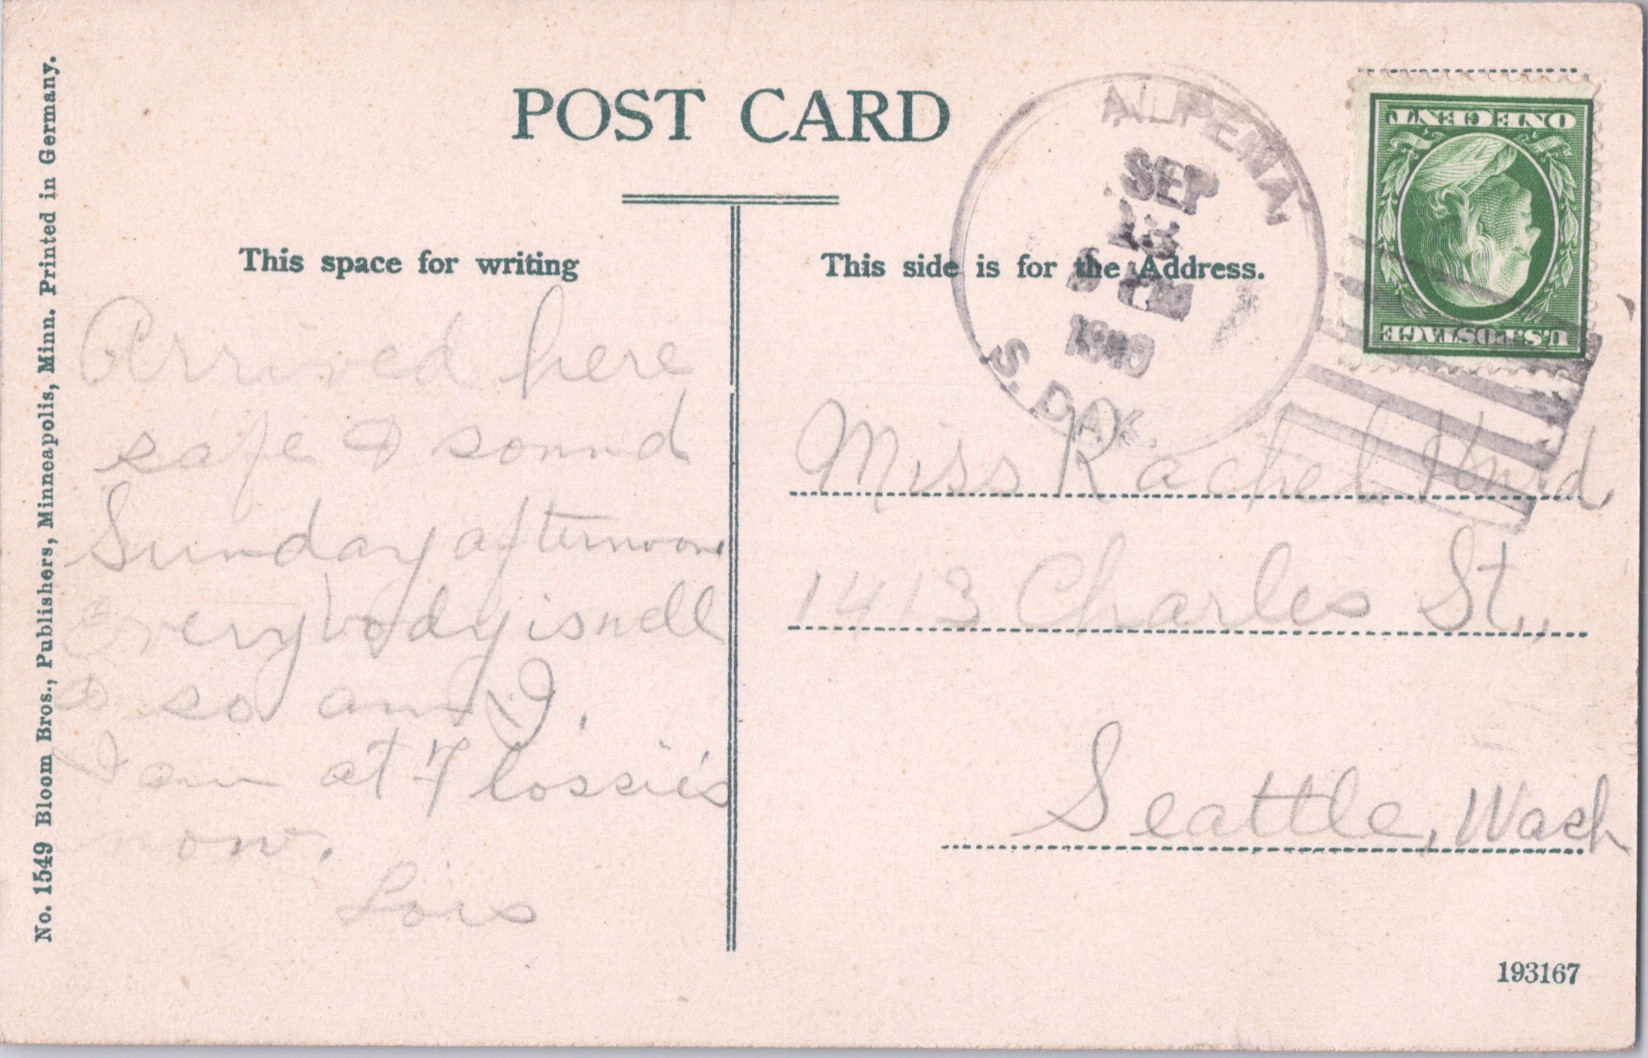 POST CARD
This space for writing
This side is for the Address.
ALPENA,
SEP
S. DAK.
ONE CENT
U.S. POSTAGE
Arrived here
safe & sound
Sunday afternoon
Everybody is well
& so am I.
I am at Flossie's
now.
Lois
Miss Rachel
1413 Charles St.,
Seattle, Wash
No. 1549 Bloom Bros., Publishers, Minneapolis, Minn. Printed in Germany.
193167